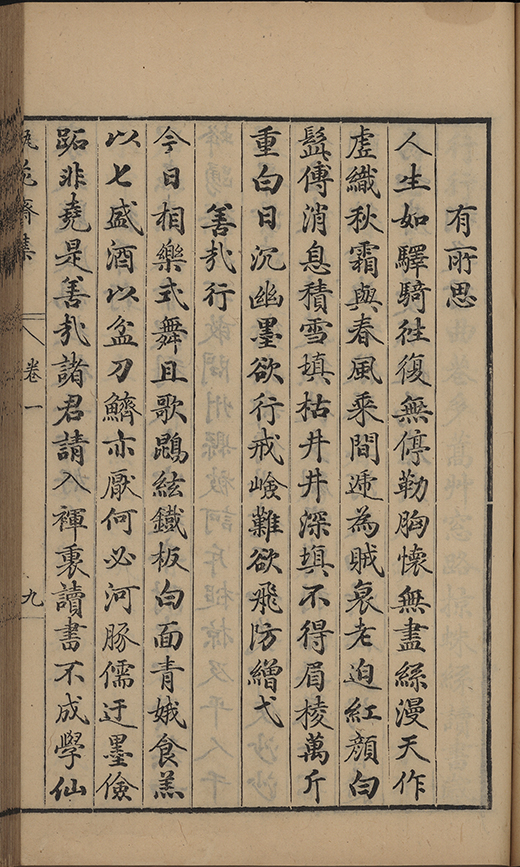 有所思
人生如驛騎往復無停勒胸懷無盡絲漫天作
虛織秋霜與春風乘間遞為賊哀老迫紅顏白
髭傳消息積雪填枯井井深填不得眉棱萬斤
重白日沉幽墨欲行戒嶮難欲飛防繒弋
善哉行
今日相樂式舞且歌鵾絃鐵板白面青娥食羔
以七盛酒以盆刀鱭亦厭何必河豚儒迂墨儉
跖非堯是善哉諸君請入褌裏讀書不成學仙
卷一
九